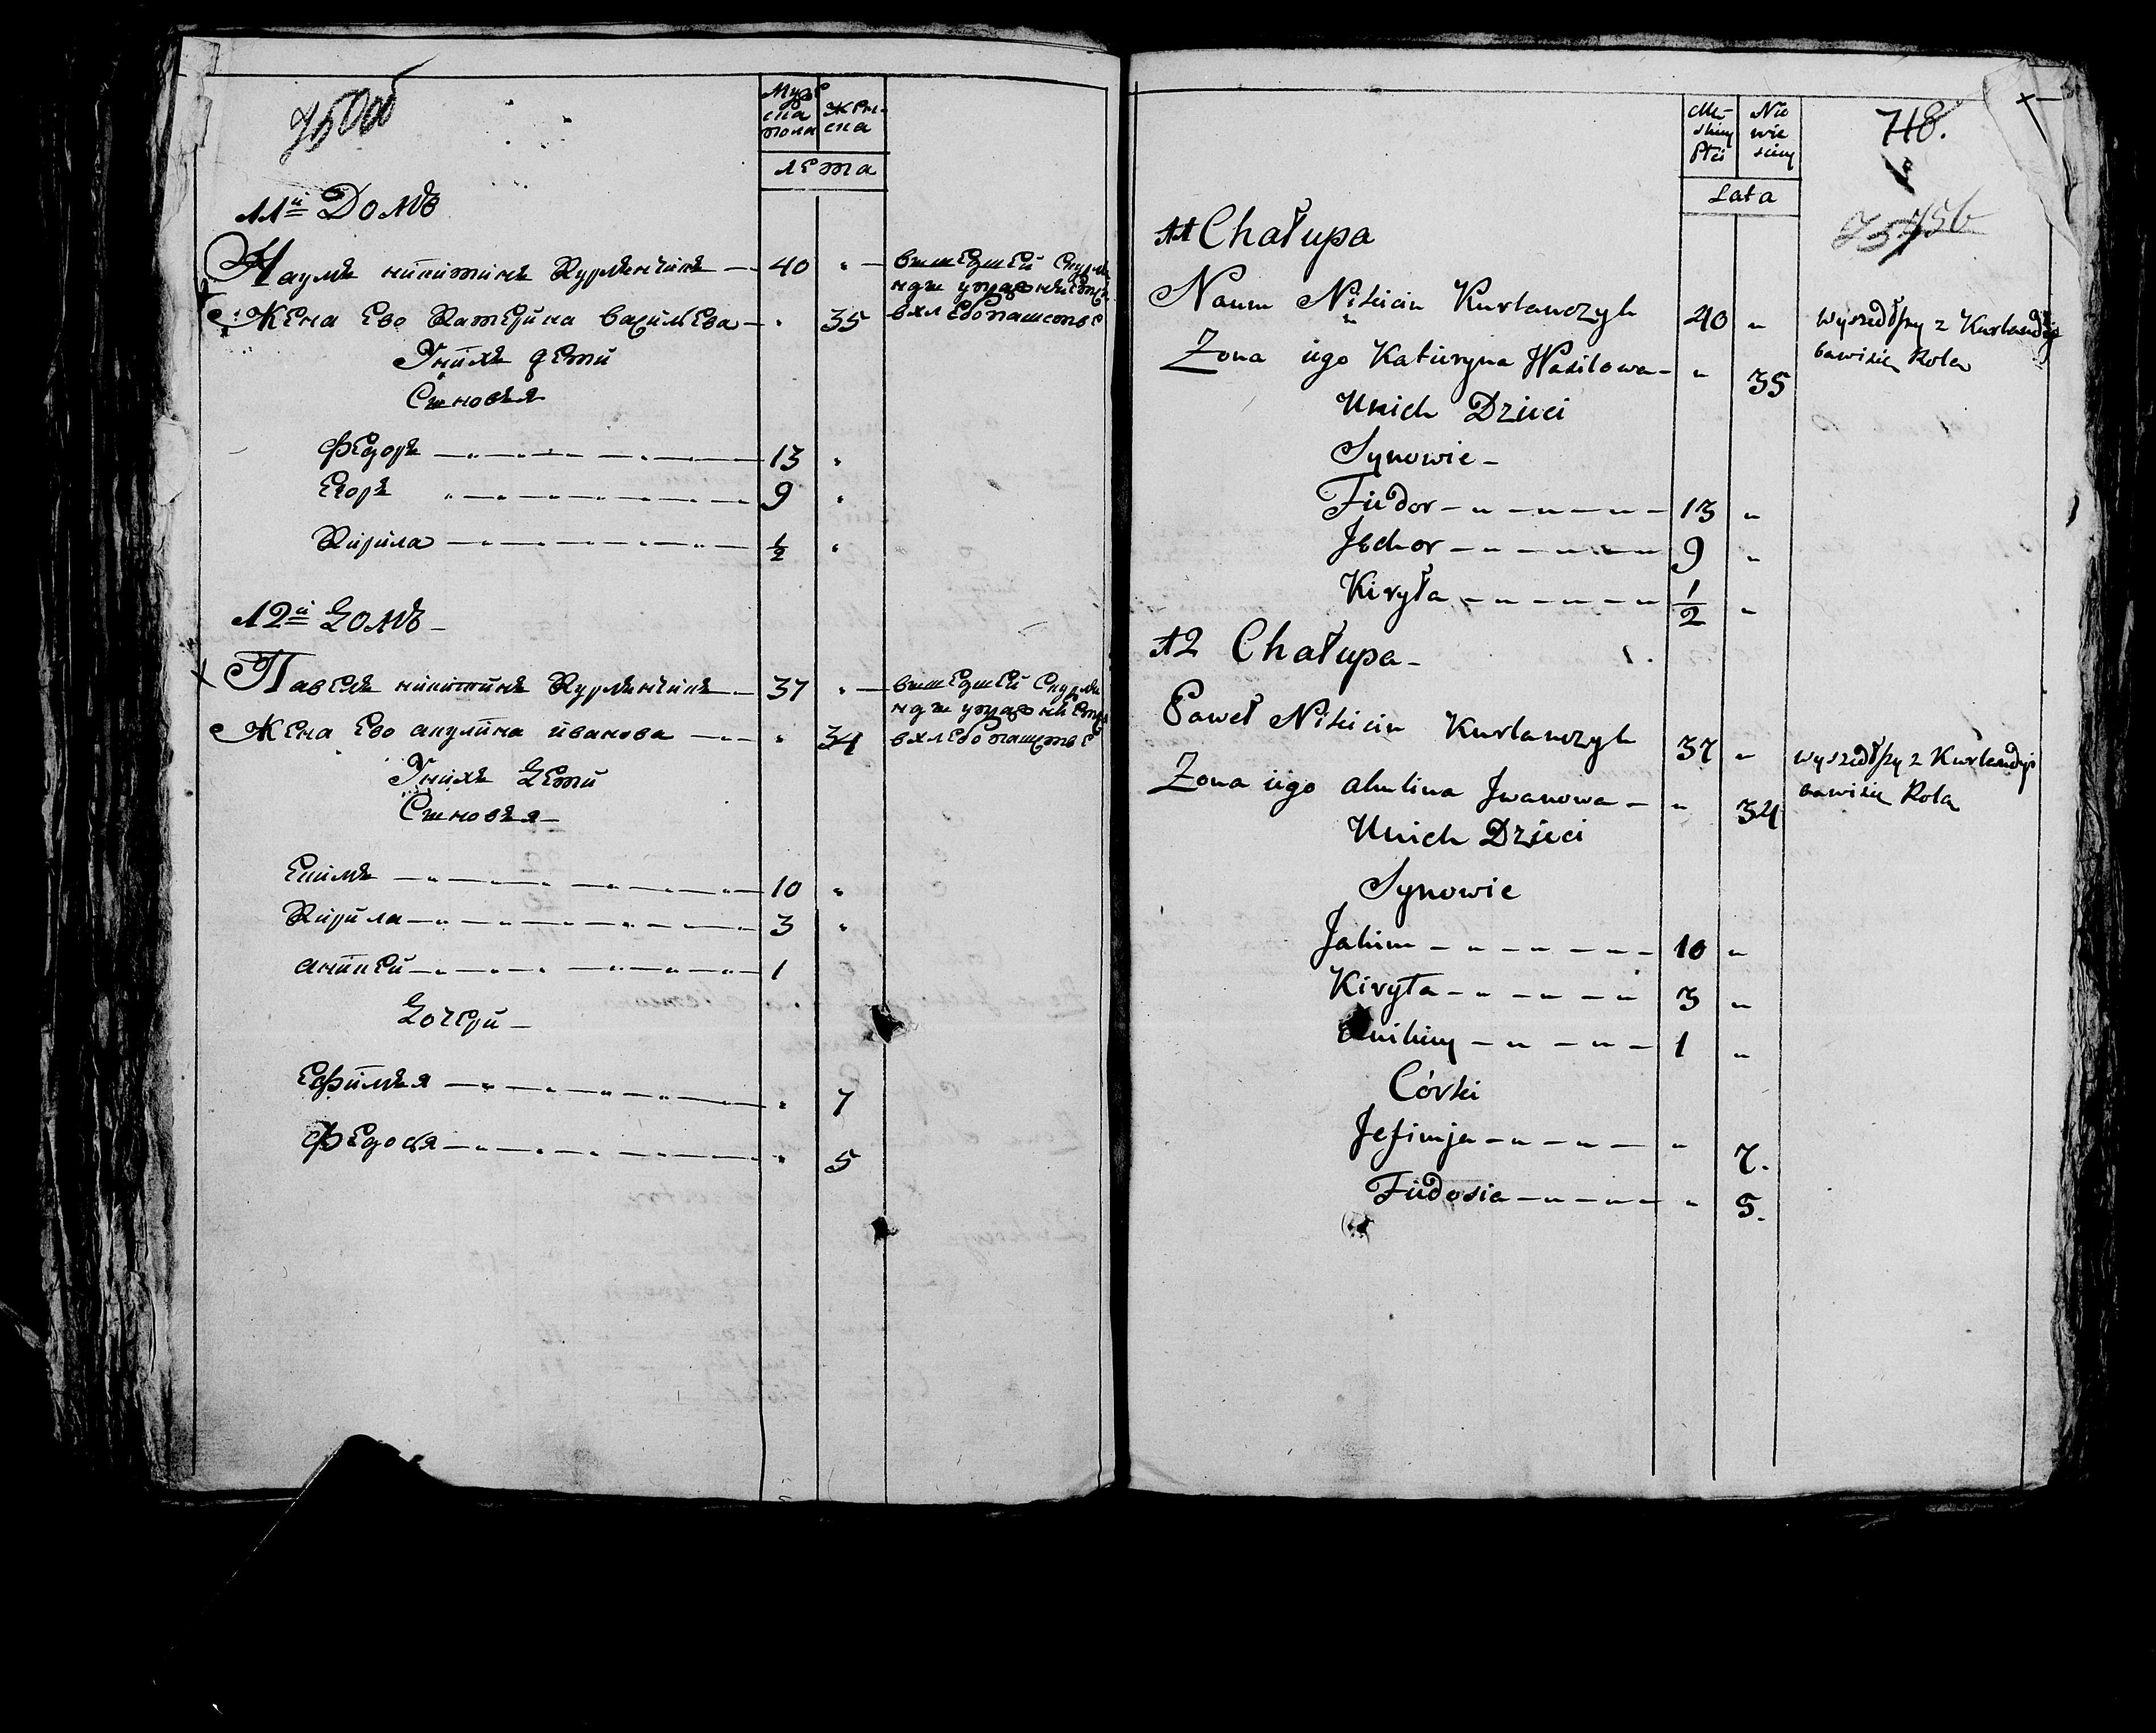 Мужеска пола
Женска
лета
11й Домъ
Наумъ никитинъ Курлянчикъ — 40 "
вышедшей Скурляндж упражняется
вхлебопашстве
Жена Ево Катерина васильева — " 35
Унихъ дети
Сыновья
Федоръ 13 "
Егоръ 9 "
Кирила ½ "
12й Домъ
Павелъ никитинъ Курлянчикъ — 37 "
вышедшей Скурляндж упражняется
вхлебопашстве
Жена Ево акулина иванова — " 34
Унихъ Дети
Сыновья
Екимъ 10 "
Кирила 3 "
аникей 1
Дочери
Ефимья " 7
Федосья " 5
Męskiey Płci
Niewiesciey
718.
Lata
756
11 Chałupa
Naum Nikicin Kurlanczyk 40 "
wyszedłszy z Kurlandyi
bawi sie Rola
Zona iego Katieryna Wasilowa " 35
Unich Dzieci
Synowie
Fiedor 13 "
Jechor 9 "
Kiryła ½ "
12 Chałupa
Paweł Nikicin Kurlanczyk 37 "
wyszedłszy z Kurlandyi
bawi sie Rola
Zona iego akulina Jwanowa " 34
Unich Dzieci
Synowie
Jakim 10 "
Kiryła 3 "
anikiey 1 "
Córki
Jefimja " 7.
Fiedosia " 5.